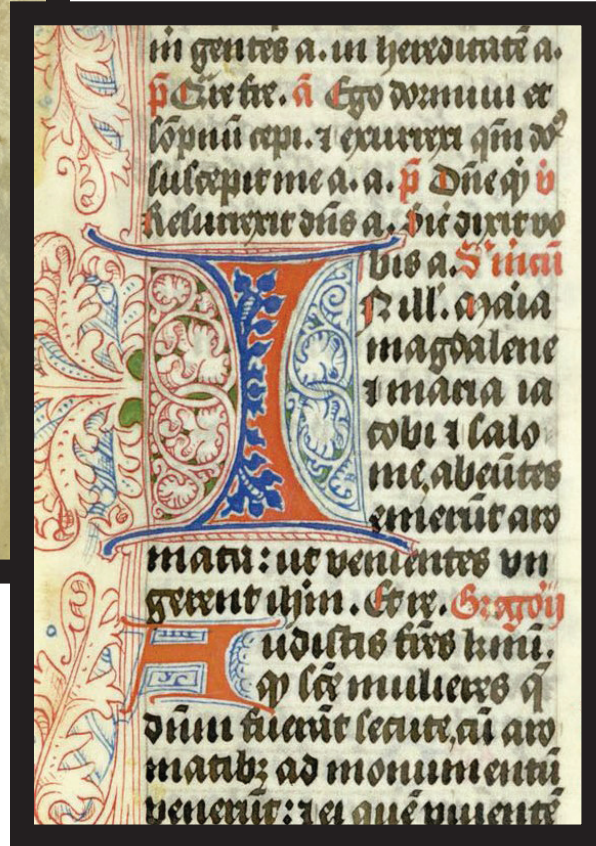 in gentes a. in hereditatē a.
p̄ Q̄re fre. ā Ego dormiui et
sōpnū cepi. ⁊ exurrexi qm̄ dō
suscepit me a. a. p̄ Dn̄e qͥ v̄
Resurrexit dn̄s a. sic dixit vo
bis a. S' marcū
ill'. Maria
magdalene
⁊ maria ia
cobi ⁊ salo
me, abeūtes
emerūt aro
mata: ut venientes un
gerent ihm. Et re. Gregorij
Audistis frēs kmi.
qͥ scē mulieres q̄
dn̄m fuerāt secute, cū aro
matibꝫ ad monumentū
venerūt: ⁊ ei quē viuentē